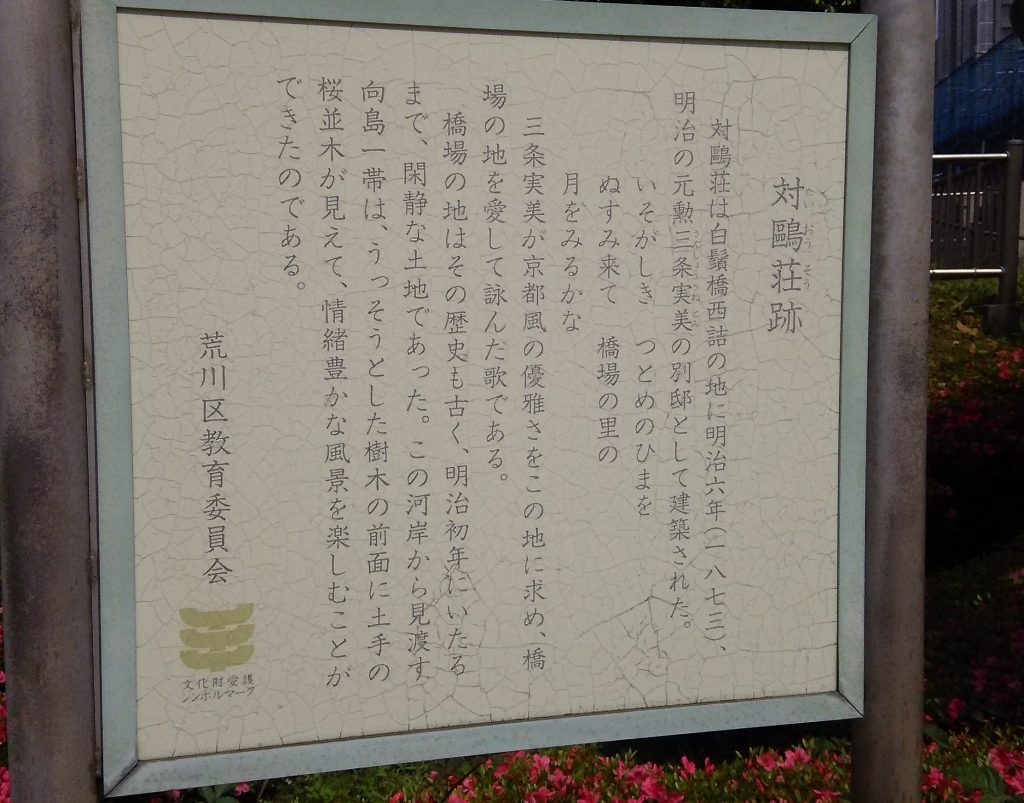 対鷗荘跡
対鷗荘は白鬚橋西詰の地に明治六年(一八七三)、
明治の元勲三条実美の別邸として建築された。
いそがしき つとめのひまを
ぬすみ来て 橋場の里の
月をみるかな
三条実美が京都風の優雅さをこの地に求め、橋
場の地を愛して詠んだ歌である。
橋場の地はその歴史も古く、明治初年にいたる
まで、閑静な土地であった。この河岸から見渡す
向島一帯は、うっそうとした樹木の前面に土手の
桜並木が見えて、情緒豊かな風景を楽しむことが
できたのである。
荒川区教育委員会
文化財愛護
シンボルマーク